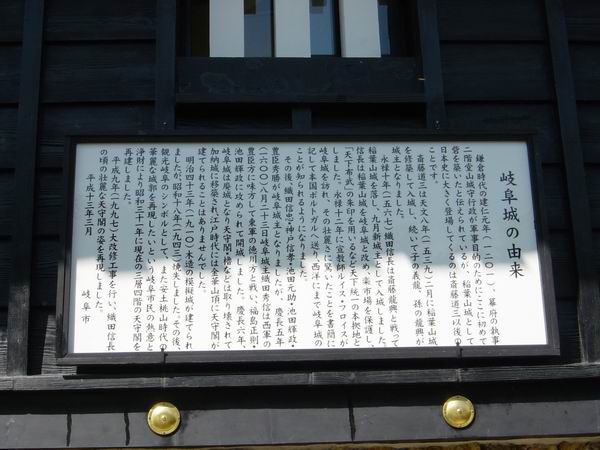 岐阜城の由来
鎌倉時代の建仁元年(一二〇一)、幕府の執事
二階堂山城守行政が軍事目的のためにここに初めて
砦を築いたと伝えられているが、稲葉山城として
日本史に大きく登場してくるのは斎藤道三以後の
ことです。
斎藤道三は天文八年(一五三九)二月に稲葉山城
を修築して入城し、続いて子の義龍、孫の龍興が
城主となりました。
永禄十年(一五六七)織田信長は斎藤龍興と戦って
稲葉山城を落し、九月新城主として入城しました。
信長は稲葉山城を岐阜城と改め、楽市場を保護し、
「天下布武」の朱印を用いるなど天下統一の本拠地と
しました。永禄十二年に宣教師ルイス・フロイスが
岐阜城を訪れ、その壮麗さに驚いたことを書簡に
記して本国ポルトガルへ送り、西洋にまで岐阜城の
ことが知られるようになりました。
その後、織田信忠・神戸信孝・池田元助・池田輝政・
豊臣秀勝が岐阜城主となりましたが、慶長五年
(一六〇〇)八月二十三日岐阜城主織田秀信は西軍の
豊臣方に味方し、東軍の徳川方と戦い、福島正則・
池田輝政に攻められて落城開城しました。慶長六年、
岐阜城は廃城となり天守閣・櫓などは取り壊されて
加納城に移築され、江戸時代には金華山頂に天守閣が
建てられることはありませんでした。
明治四十三年(一九一〇)木造の模擬城が建てられ
ましたが、昭和十八年(一九四三)焼失しました。その後、
観光岐阜のシンボルとして、また安土桃山時代の
華麗な城郭を再現したいという岐阜市民の熱意と
浄財により昭和三十一年に現在の三層四階の天守閣を
再建しました。
平成九年(一九九七)大改修工事を行い、織田信長
の頃の壮麗な天守閣の姿を再現しました。
平成十三年三月
岐阜市